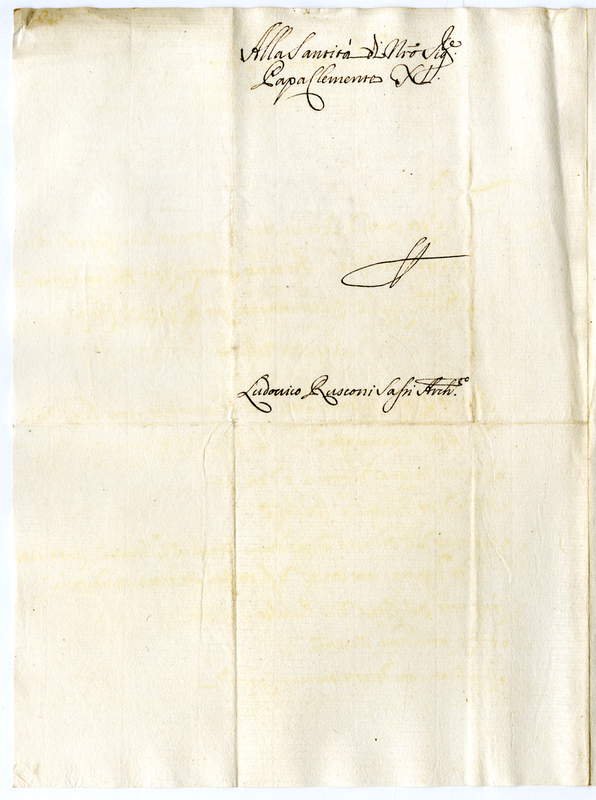 Alla Santità di Nrō Sigre.
Papa Clemente XI.
Ludovico Rusconi Sassi Archto.